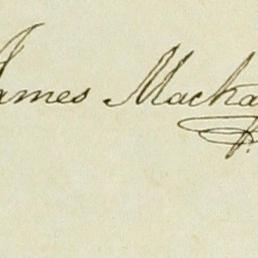 James Macka